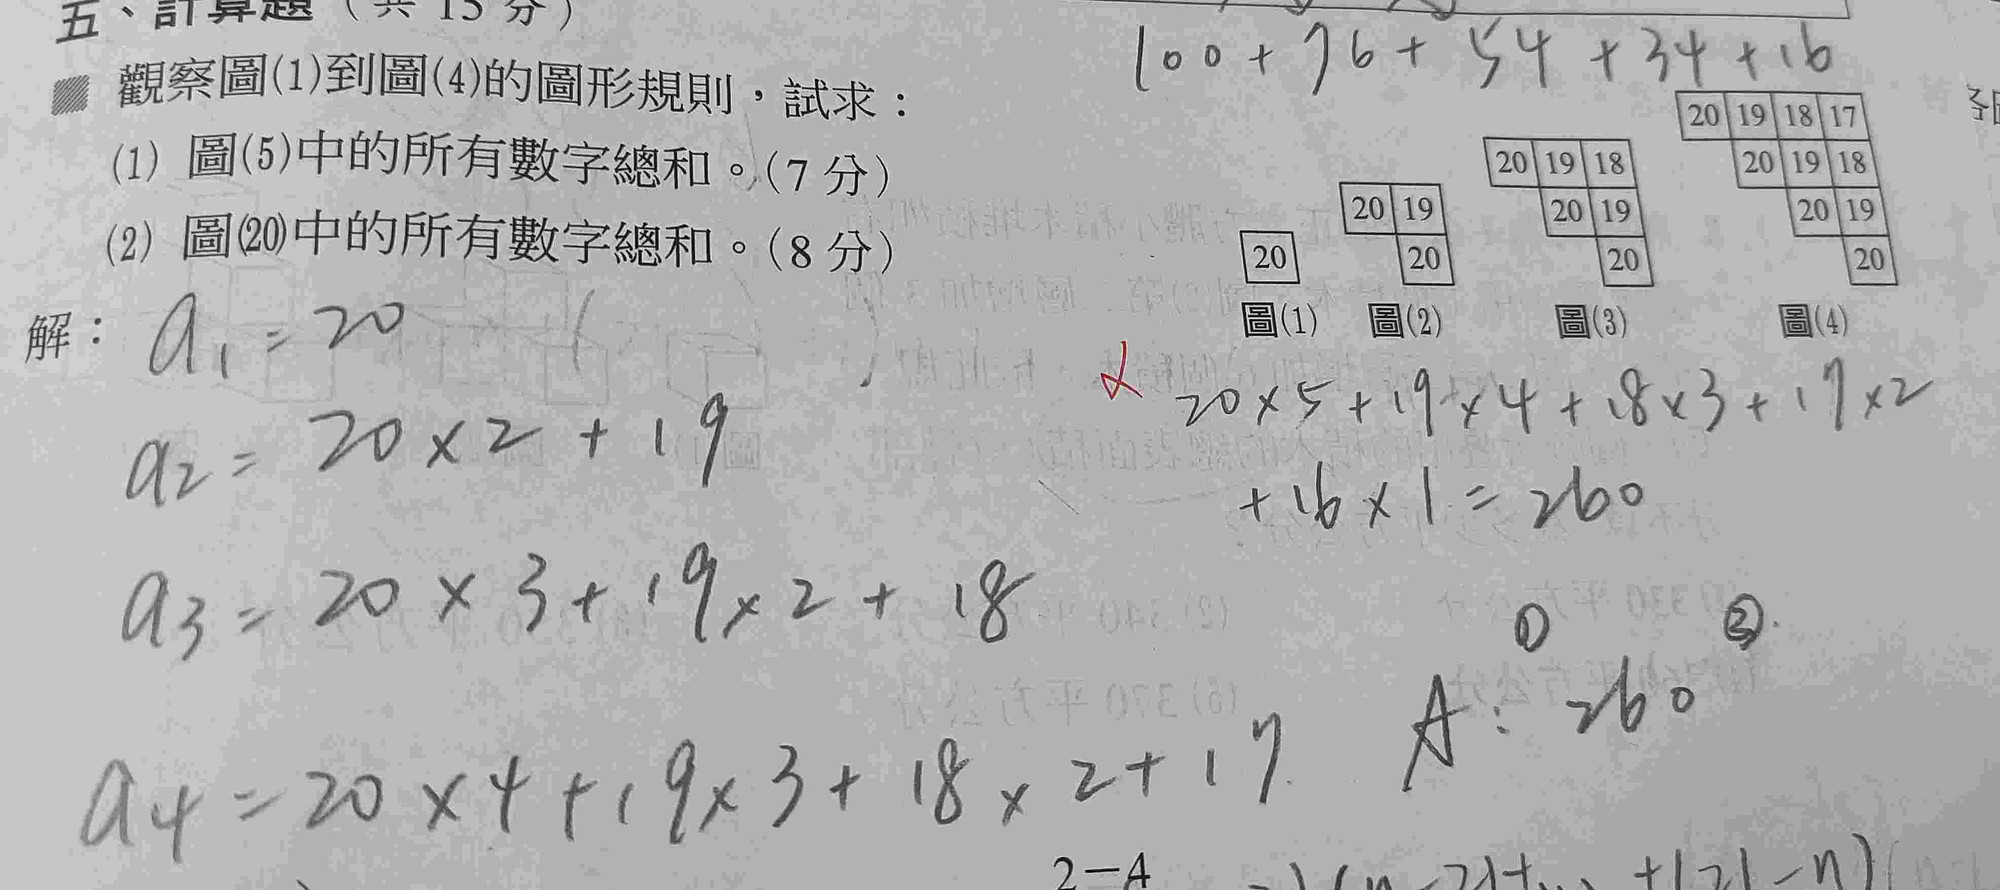 五、計算題（共 15 分）
觀察圖(1)到圖(4)的圖形規則，試求：
(1) 圖(5)中的所有數字總和。(7 分)
(2) 圖(20)中的所有數字總和。(8 分)
100 + 76 + 54 + 34 + 16
20
圖(1)
20 19
20
圖(2)
20 19 18
20 19
20
圖(3)
20 19 18 17
20 19 18
20 19
20
圖(4)
解：
a1 = 20
a2 = 20 × 2 + 19
a3 = 20 × 3 + 19 × 2 + 18
a4 = 20 × 4 + 19 × 3 + 18 × 2 + 17
20 × 5 + 19 × 4 + 18 × 3 + 17 × 2
+ 16 × 1 = 260
① ②
A: 260
2－4